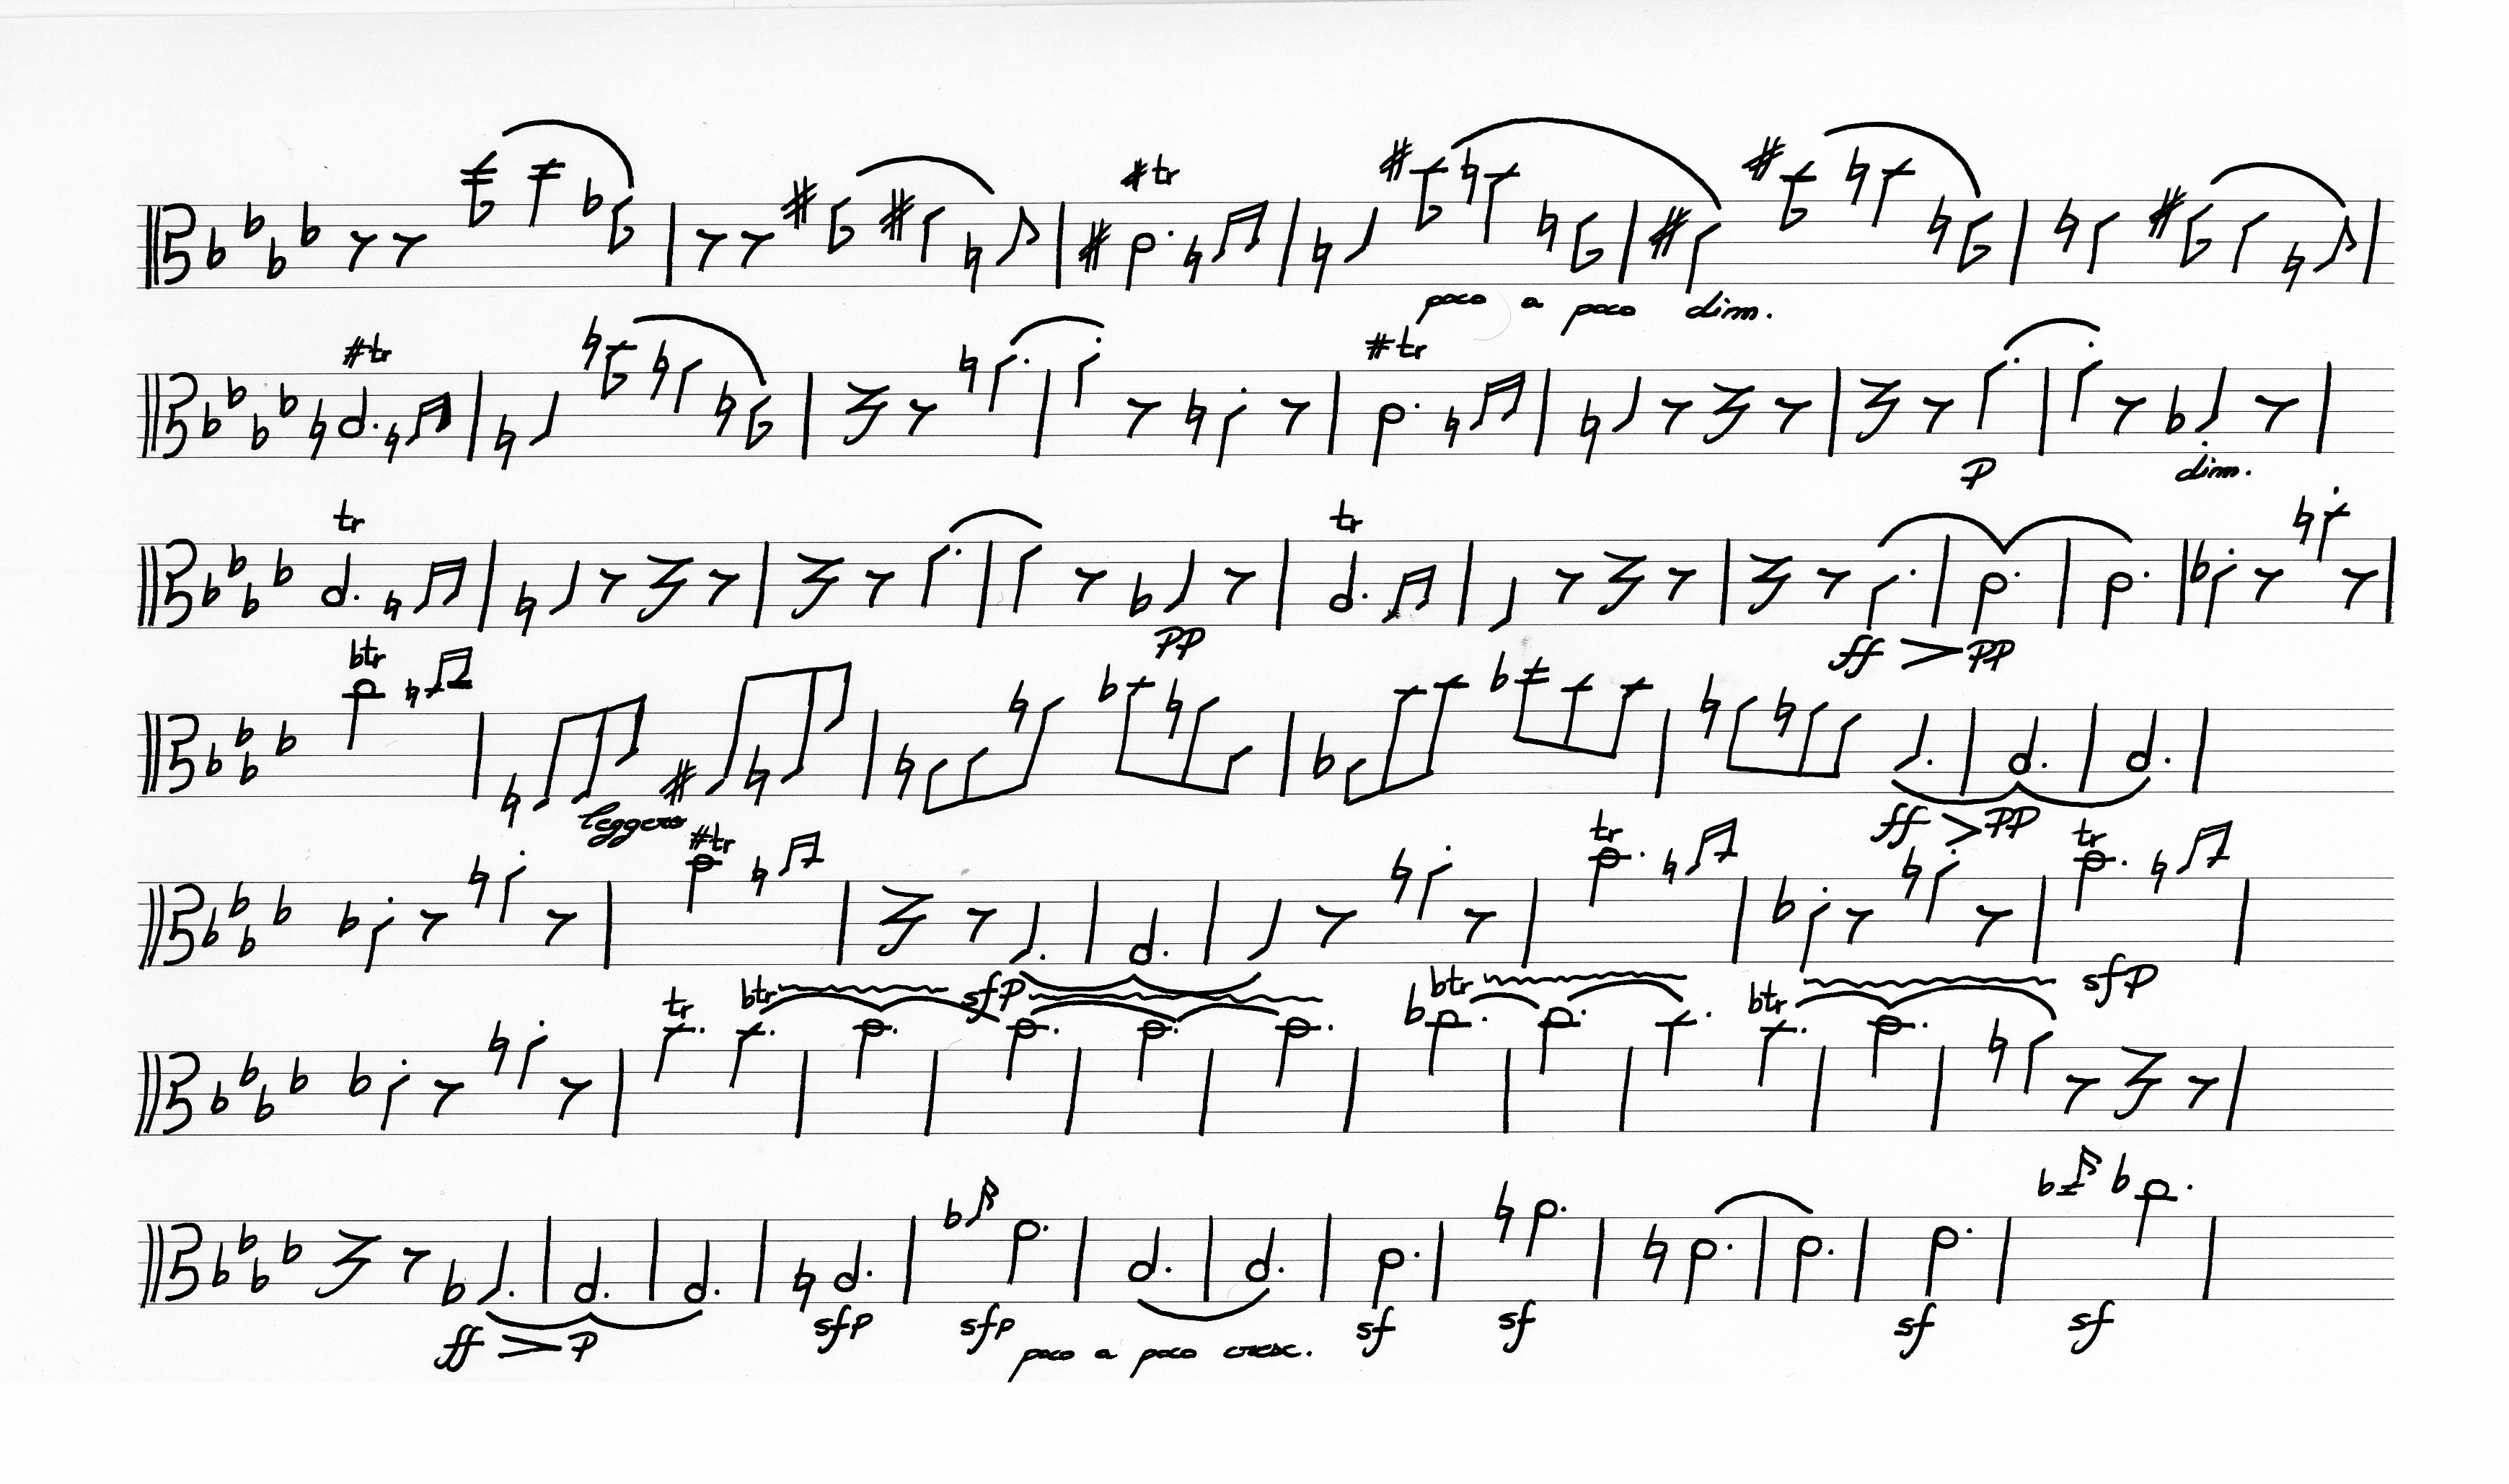 tr
poco a poco dim.
tr tr
p dim.
tr tr
pp ff pp
tr
leggero ff pp
tr tr tr
sfp sfp
tr tr tr tr
ff p sfp sfp poco a poco cresc. sf sf sf sf